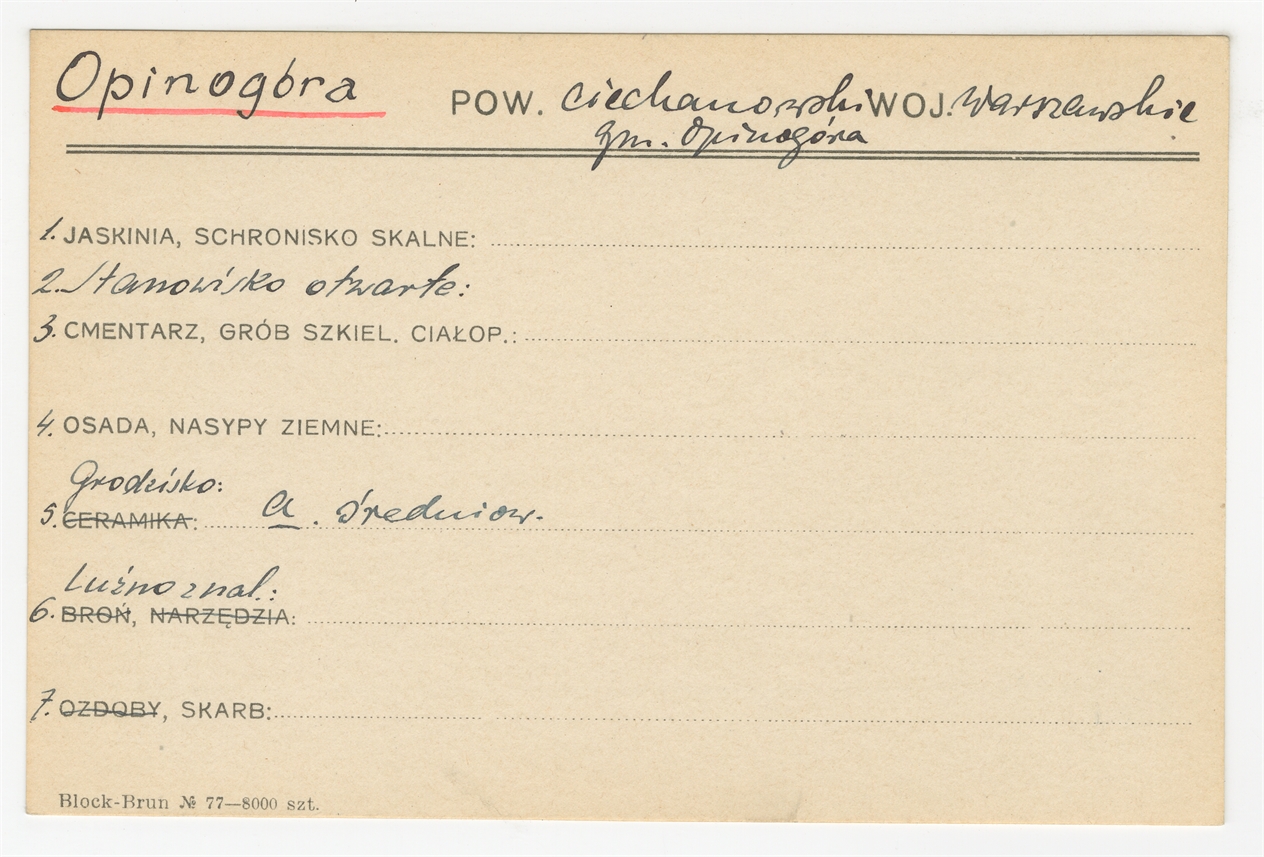 Opinogóra POW. ciechanowski WOJ. Warszawskie
gm. Opinogóra
1. JASKINIA, SCHRONISKO SKALNE:
2. Stanowisko otwarte:
3. CMENTARZ, GRÓB SZKIEL. CIAŁOP.:
4. OSADA, NASYPY ZIEMNE:
Grodzisko:
5. CERAMIKA: a. średniow.
Luźno znal.:
6. BROŃ, NARZĘDZIA:
7. OZDOBY, SKARB:
Block-Brun № 77—8000 szt.